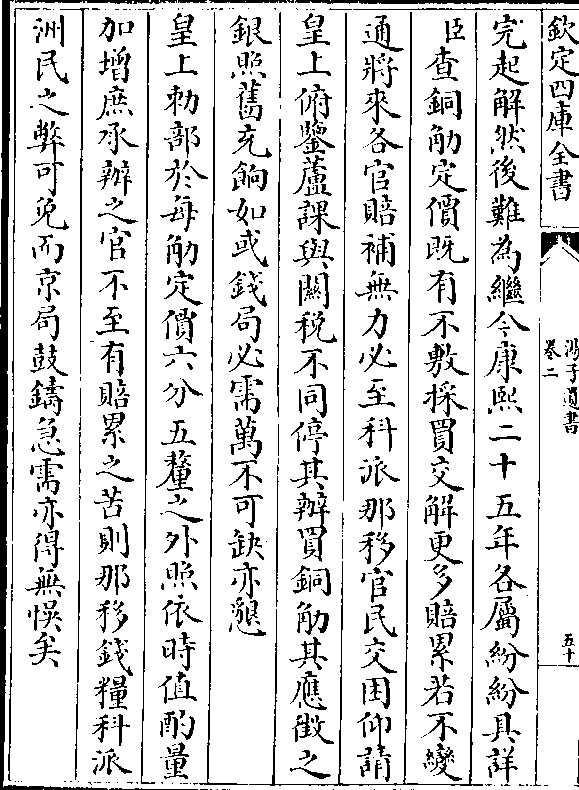 欽定四庫全書
湯子遺書
卷二
五十
完起解然後難為繼今康熙二十五年各屬紛紛具詳
臣查銅觔定價既有不敷採買交解更多賠累若不變
通將來各官賠補無力必至科派那移官民交困仰請
皇上俯鑒蘆課與關稅不同停其辦買銅觔其應徵之
銀照舊充餉如或錢局必需萬不可缺亦懇
皇上勅部於每觔定價六分五釐之外照依時值酌量
加增庶承辦之官不至有賠累之苦則那移錢糧科派
洲民之弊可免而京局鼓鑄急需亦得無悞矣